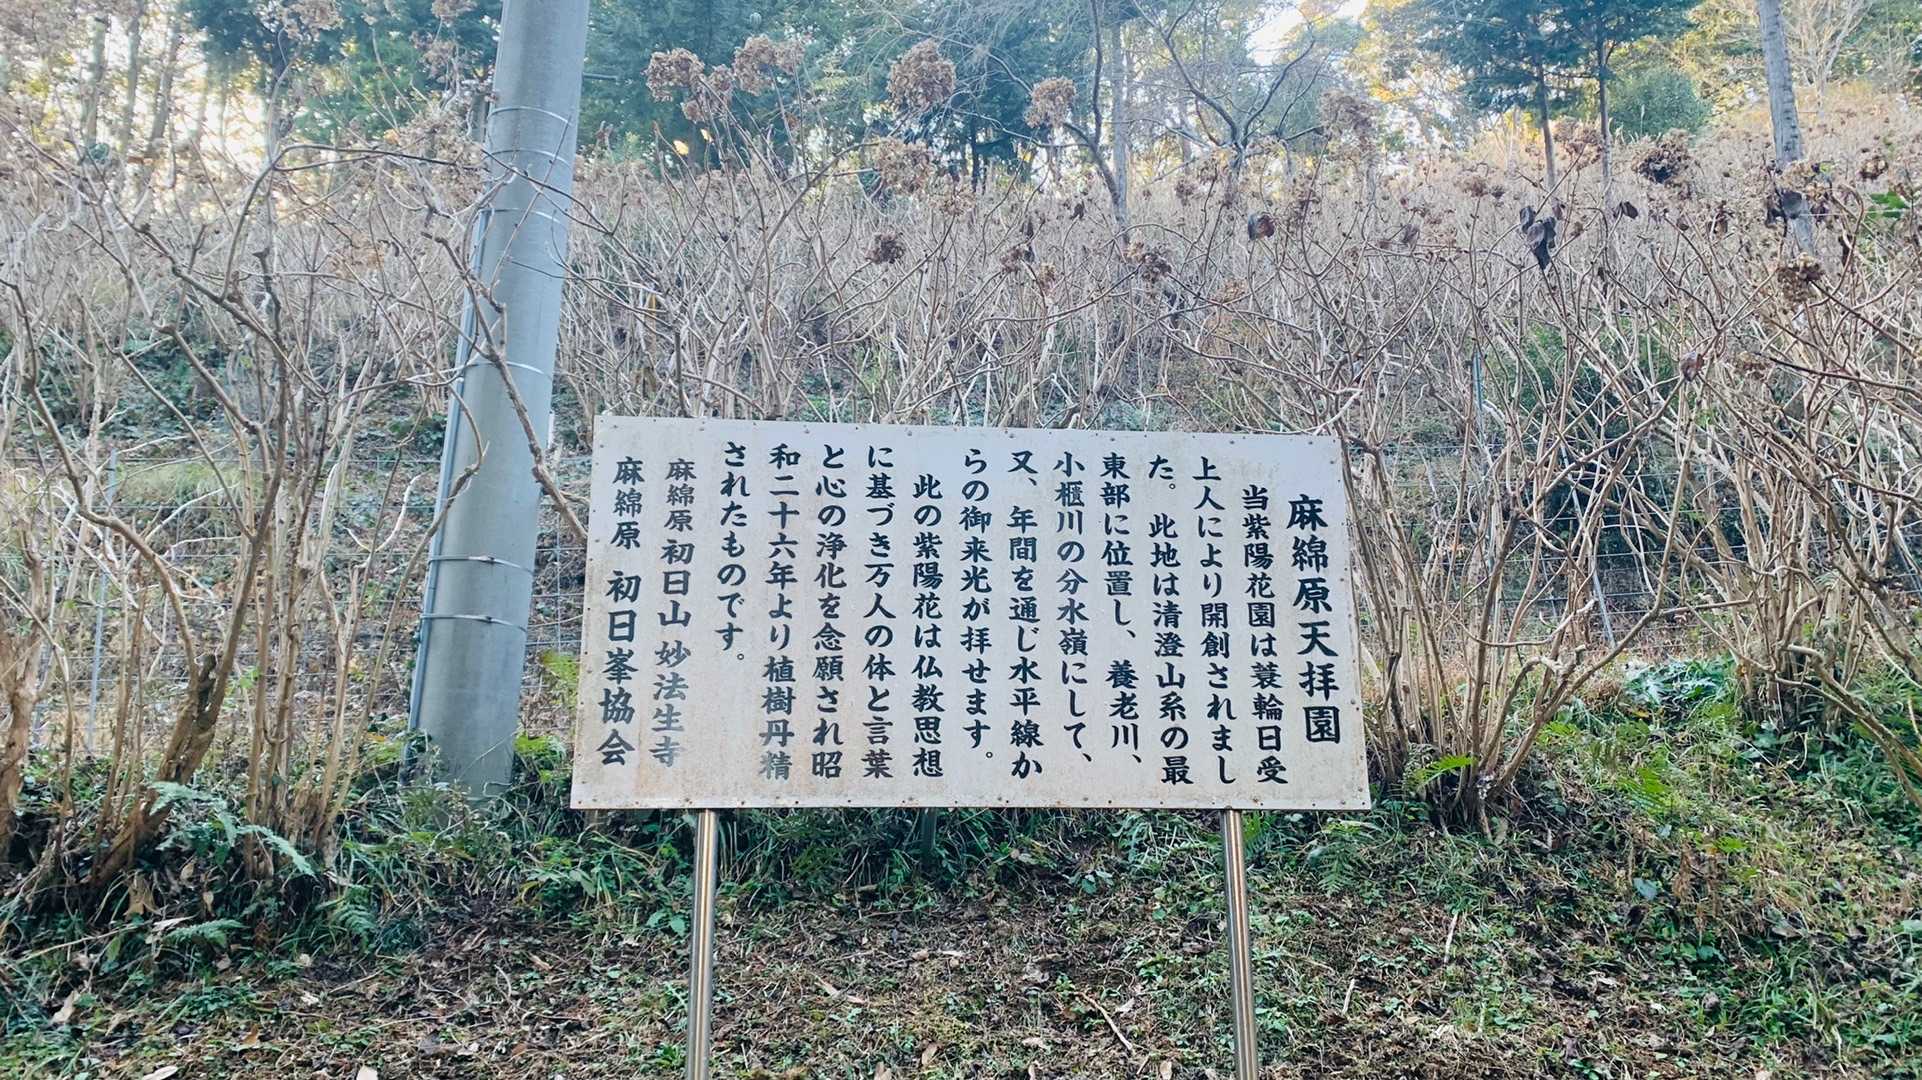 麻綿原天拝園
当紫陽花園は蓑輪日受
上人により開創されまし
た。此地は清澄山系の最
東部に位置し、養老川、
小櫃川の分水嶺にして、
又、年間を通じ水平線か
らの御来光が拝せます。
此の紫陽花は仏教思想
に基づき万人の体と言葉
と心の浄化を念願され昭
和二十六年より植樹丹精
されたものです。
麻綿原初日山 妙法生寺
麻綿原 初日峯協会